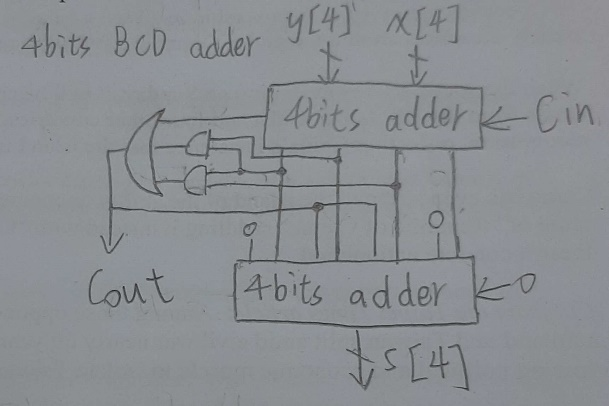 4bits BCD adder
y[4] x[4]
4bits adder
Cin
0
0
Cout
4bits adder
0
s[4]